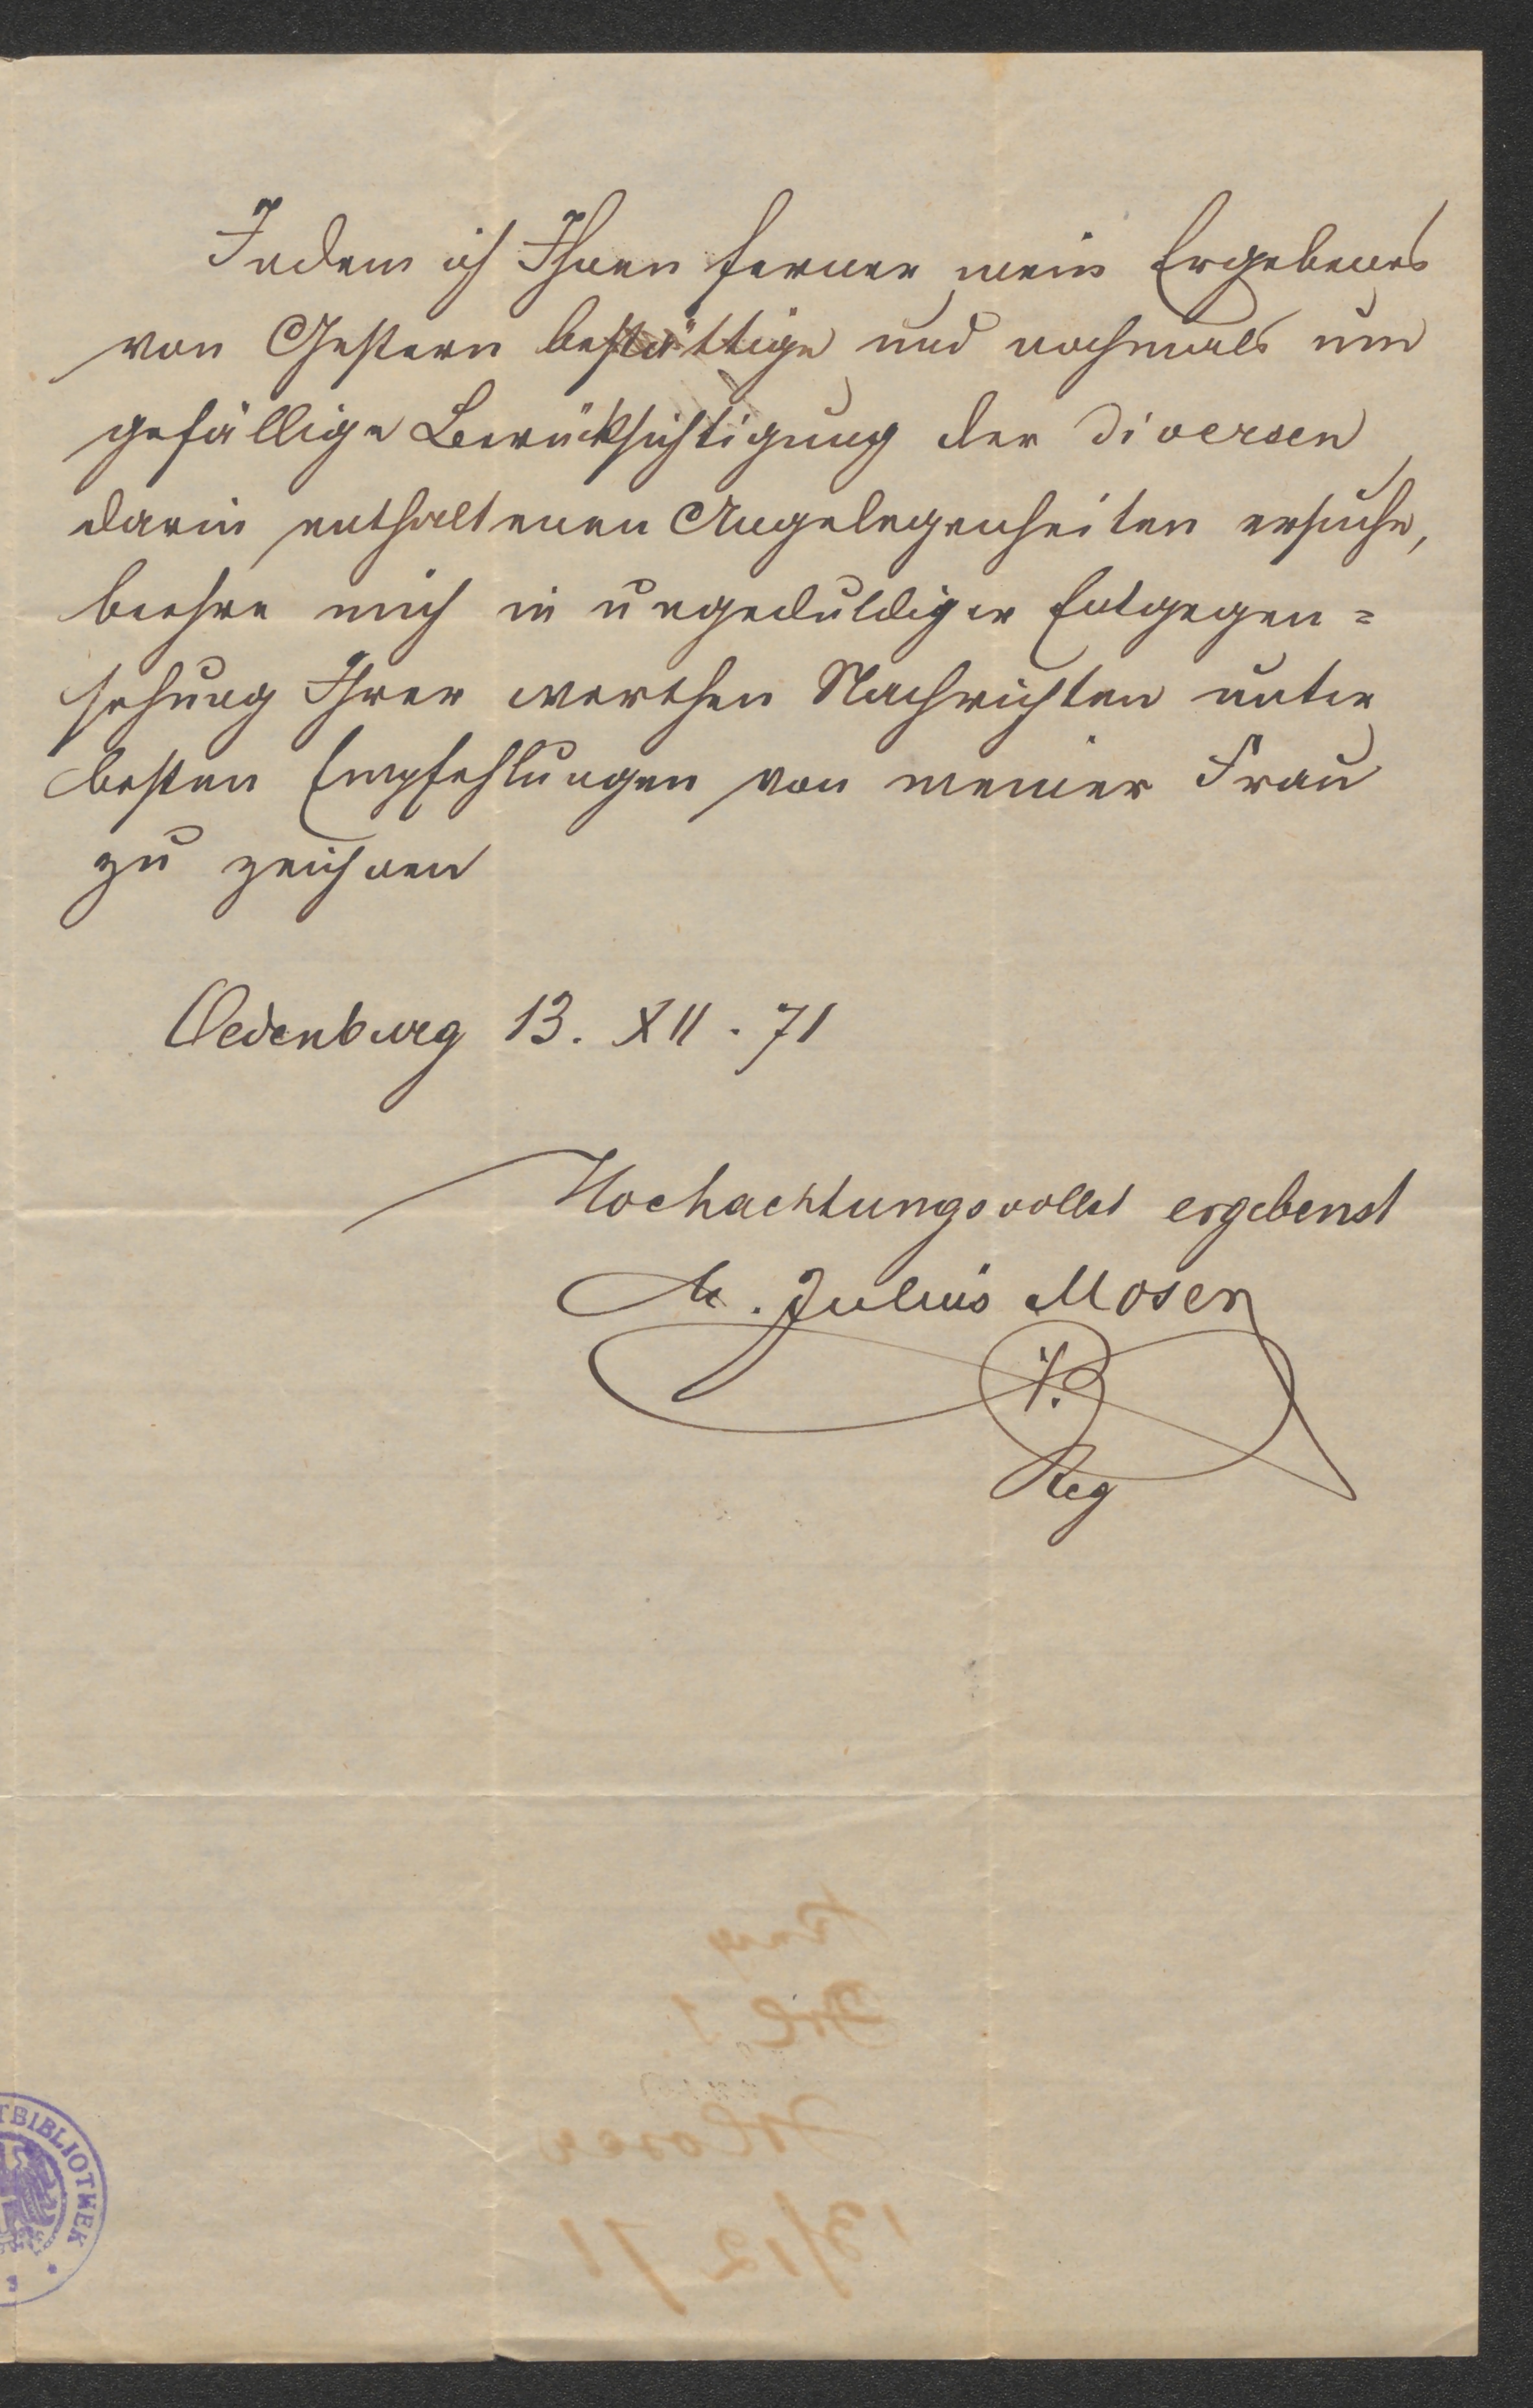 Indem ich Ihnen ferner mein Ergebenes
von Gestern bestättige und nochmals um
gefällige Berücksichtigung der diversen
darin enthaltenen Angelegenheiten ersuche,
beehre mich in ungeduldiger Entgegen=
sehung Ihrer werthen Nachrichten unter
besten Empfehlungen von meiner Frau
zu zeichnen
Oedenburg 13. XII. 71
Hochachtungsvollst ergebenst
M. Julius Mosen
Reg
TBIBLIOTHEK
Mosen
13/12 71